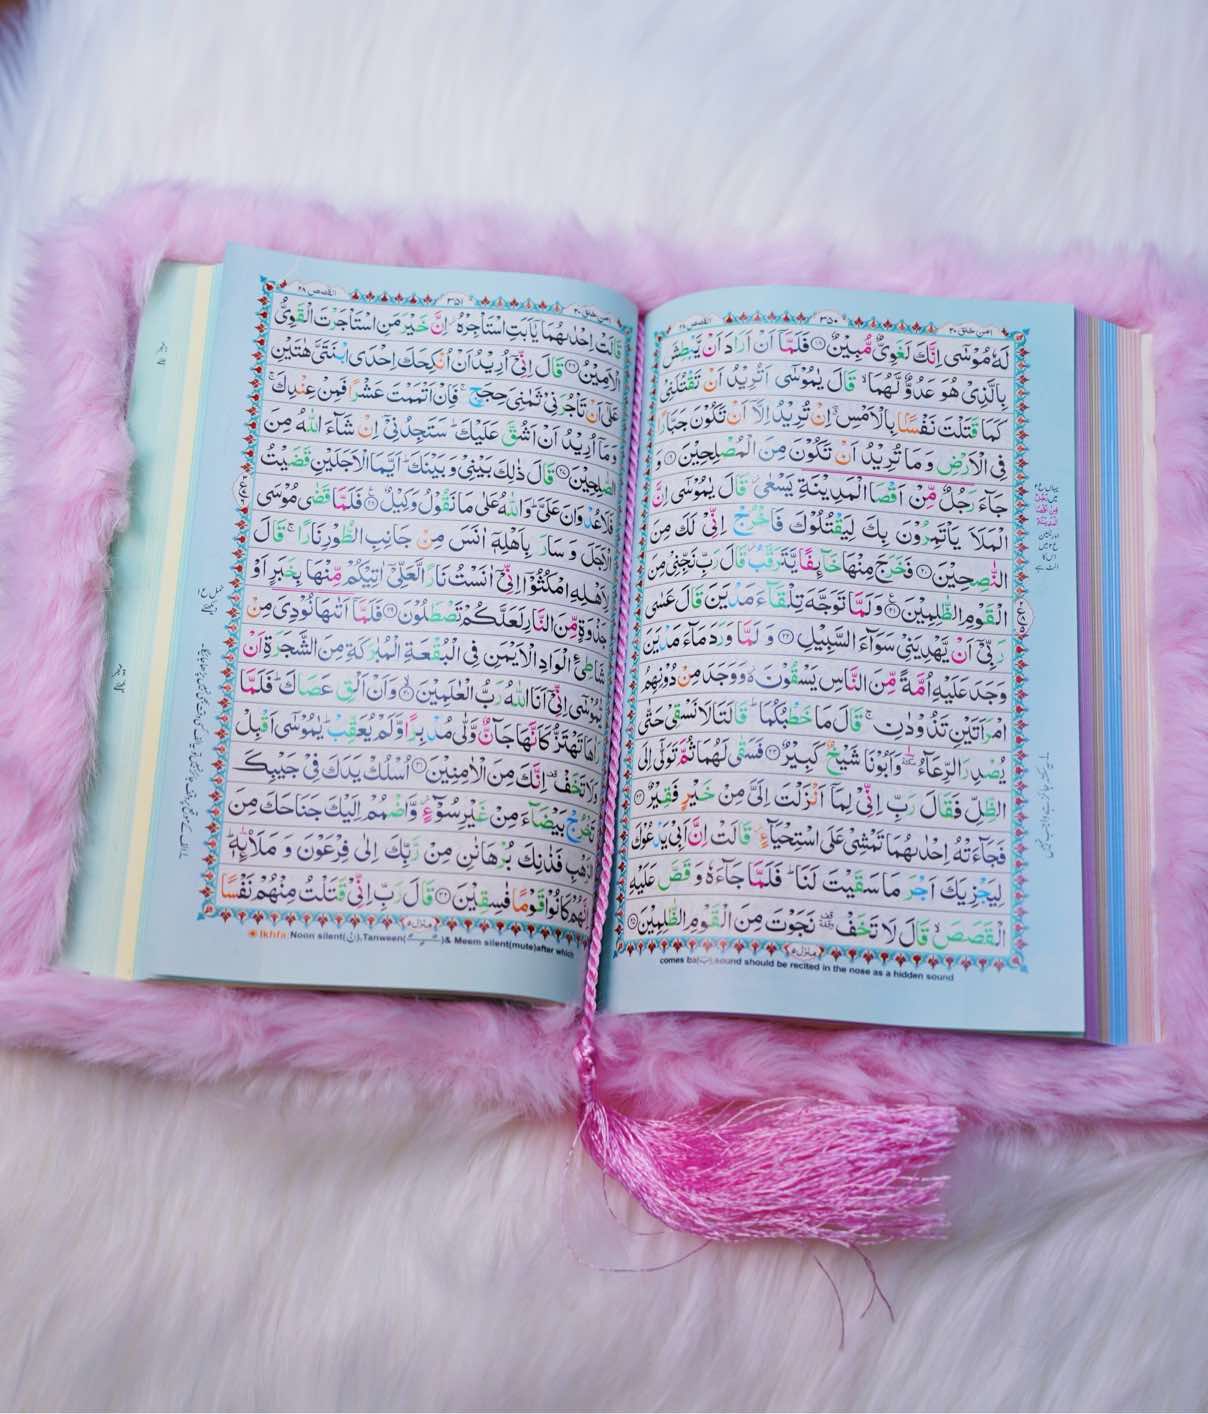 امن خلق ٢٠ ٣٥٠ القصص ٢٨
لَهٗ مُوْسٰۤى اِنَّكَ لَغَوِىٌّ مُّبِيْنٌ ۝١٨ فَلَمَّاۤ اَنْ اَرَادَ اَنْ يَّبْطِشَ
بِالَّذِىْ هُوَ عَدُوٌّ لَّهُمَا ۙ قَالَ يٰمُوْسٰۤى اَتُرِيْدُ اَنْ تَقْتُلَنِىْ
كَمَا قَتَلْتَ نَفْسًۢا بِالْاَمْسِ ۖ اِنْ تُرِيْدُ اِلَّاۤ اَنْ تَكُوْنَ جَبَّارًا
فِى الْاَرْضِ وَمَا تُرِيْدُ اَنْ تَكُوْنَ مِنَ الْمُصْلِحِيْنَ ۝١٩ وَ
جَآءَ رَجُلٌ مِّنْ اَقْصَا الْمَدِيْنَةِ يَسْعٰى ۫ قَالَ يٰمُوْسٰۤى اِنَّ
الْمَلَاَ يَاْتَمِرُوْنَ بِكَ لِيَقْتُلُوْكَ فَاخْرُجْ اِنِّىْ لَكَ مِنَ
النّٰصِحِيْنَ ۝٢٠ فَخَرَجَ مِنْهَا خَآئِفًا يَّتَرَقَّبُ ۫ قَالَ رَبِّ نَجِّنِىْ مِنَ
الْقَوْمِ الظّٰلِمِيْنَ ۝٢١ وَلَمَّا تَوَجَّهَ تِلْقَآءَ مَدْيَنَ قَالَ عَسٰى
رَبِّىْۤ اَنْ يَّهْدِيَنِىْ سَوَآءَ السَّبِيْلِ ۝٢٢ وَلَمَّا وَرَدَ مَآءَ مَدْيَنَ
وَجَدَ عَلَيْهِ اُمَّةً مِّنَ النَّاسِ يَسْقُوْنَ ۬ وَوَجَدَ مِنْ دُوْنِهِمُ
امْرَاَتَيْنِ تَذُوْدٰنِ ۚ قَالَ مَا خَطْبُكُمَا ؕ قَالَتَا لَا نَسْقِىْ حَتّٰى
يُصْدِرَ الرِّعَآءُ ٚ وَاَبُوْنَا شَيْخٌ كَبِيْرٌ ۝٢٣ فَسَقٰى لَهُمَا ثُمَّ تَوَلّٰۤى اِلَى
الظِّلِّ فَقَالَ رَبِّ اِنِّىْ لِمَاۤ اَنْزَلْتَ اِلَىَّ مِنْ خَيْرٍ فَقِيْرٌ ۝٢٤
فَجَآءَتْهُ اِحْدٰىهُمَا تَمْشِىْ عَلَى اسْتِحْيَآءٍ ۫ قَالَتْ اِنَّ اَبِىْ يَدْعُوْكَ
لِيَجْزِيَكَ اَجْرَ مَا سَقَيْتَ لَنَا ؕ فَلَمَّا جَآءَهٗ وَقَصَّ عَلَيْهِ
الْقَصَصَ ۙ قَالَ لَا تَخَفْ ۥ نَجَوْتَ مِنَ الْقَوْمِ الظّٰلِمِيْنَ ۝٢٥
comes ba(ب) sound should be recited in the nose as a hidden sound
امن خلق ٢٠ ٣٥١ القصص ٢٨
قَالَتْ اِحْدٰىهُمَا يٰۤاَبَتِ اسْتَاْجِرْهُ ؗ اِنَّ خَيْرَ مَنِ اسْتَاْجَرْتَ الْقَوِىُّ
الْاَمِيْنُ ۝٢٦ قَالَ اِنِّىْۤ اُرِيْدُ اَنْ اُنْكِحَكَ اِحْدَى ابْنَتَىَّ هٰتَيْنِ
عَلٰۤى اَنْ تَاْجُرَنِىْ ثَمٰنِىَ حِجَجٍ ۚ فَاِنْ اَتْمَمْتَ عَشْرًا فَمِنْ عِنْدِكَ ۚ
وَمَاۤ اُرِيْدُ اَنْ اَشُقَّ عَلَيْكَ ؕ سَتَجِدُنِىْۤ اِنْ شَآءَ اللّٰهُ مِنَ
الصّٰلِحِيْنَ ۝٢٧ قَالَ ذٰلِكَ بَيْنِىْ وَبَيْنَكَ ؕ اَيَّمَا الْاَجَلَيْنِ قَضَيْتُ
فَلَا عُدْوَانَ عَلَىَّ ؕ وَاللّٰهُ عَلٰى مَا نَقُوْلُ وَكِيْلٌ ۝٢٨ فَلَمَّا قَضٰى مُوْسَى
الْاَجَلَ وَسَارَ بِاَهْلِهٖۤ اٰنَسَ مِنْ جَانِبِ الطُّوْرِ نَارًا ۚ قَالَ
لِاَهْلِهِ امْكُثُوْۤا اِنِّىْۤ اٰنَسْتُ نَارًا لَّعَلِّىْۤ اٰتِيْكُمْ مِّنْهَا بِخَبَرٍ اَوْ
جَذْوَةٍ مِّنَ النَّارِ لَعَلَّكُمْ تَصْطَلُوْنَ ۝٢٩ فَلَمَّاۤ اَتٰىهَا نُوْدِىَ مِنْ
شَاطِئِ الْوَادِ الْاَيْمَنِ فِى الْبُقْعَةِ الْمُبٰرَكَةِ مِنَ الشَّجَرَةِ اَنْ
يّٰمُوْسٰۤى اِنِّىْۤ اَنَا اللّٰهُ رَبُّ الْعٰلَمِيْنَ ۝٣٠ وَاَنْ اَلْقِ عَصَاكَ ؕ فَلَمَّا
رَاٰهَا تَهْتَزُّ كَاَنَّهَا جَآنٌّ وَّلّٰى مُدْبِرًا وَّلَمْ يُعَقِّبْ ؕ يٰمُوْسٰۤى اَقْبِلْ
وَلَا تَخَفْ ۥ اِنَّكَ مِنَ الْاٰمِنِيْنَ ۝٣١ اُسْلُكْ يَدَكَ فِىْ جَيْبِكَ
تَخْرُجْ بَيْضَآءَ مِنْ غَيْرِ سُوْٓءٍ ؗ وَّاضْمُمْ اِلَيْكَ جَنَاحَكَ مِنَ
الرَّهْبِ فَذٰنِكَ بُرْهَانٰنِ مِنْ رَّبِّكَ اِلٰى فِرْعَوْنَ وَمَلَا۟ئِهٖ ؕ
اِنَّهُمْ كَانُوْا قَوْمًا فٰسِقِيْنَ ۝٣٢ قَالَ رَبِّ اِنِّىْ قَتَلْتُ مِنْهُمْ نَفْسًا
Ikhfa: Noon silent(نْ),Tanween(ـًـٍـٌ)& Meem silent(mute)after which